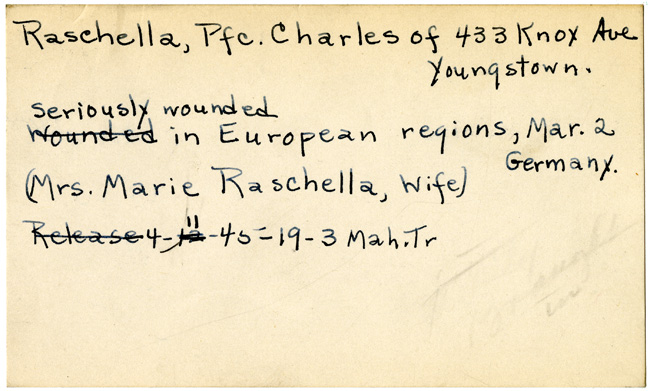 Raschella, Pfc. Charles of 433 Knox Ave
Youngstown.
seriously wounded
Wounded in European regions, Mar. 2
Germany.
(Mrs. Marie Raschella, Wife)
11
Release 4-12-45-19-3 Mah. Tr